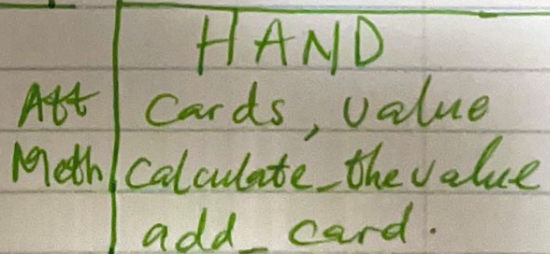 HAND
Att cards, value
Meth calculate_the value
add_ card.